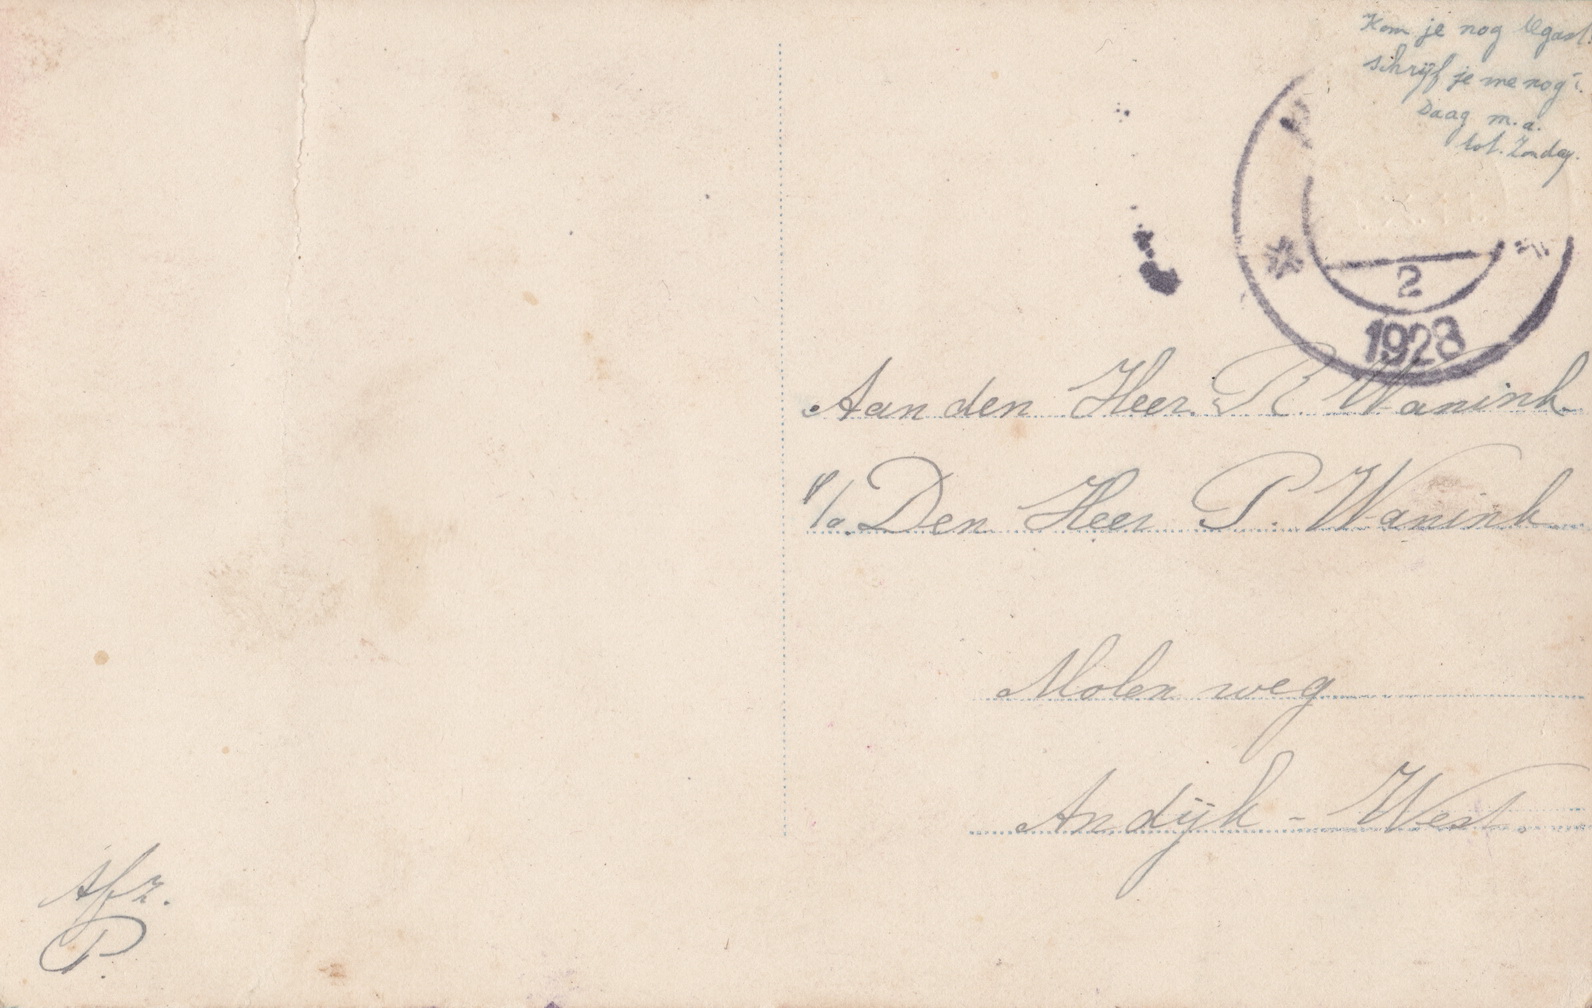 Kom je nog
schrijf je me nog?
Daag m.a.
tot. Zondag.
2
1928
Aan den Heer. R. Wanink
p/a. Den Heer P. Wanink
Molen weg
Andijk - West.
Afz.
P